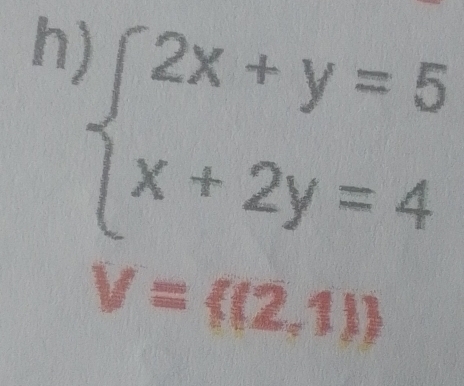 h) { 2x + y = 5
x + 2y = 4
V = {(2,1)}